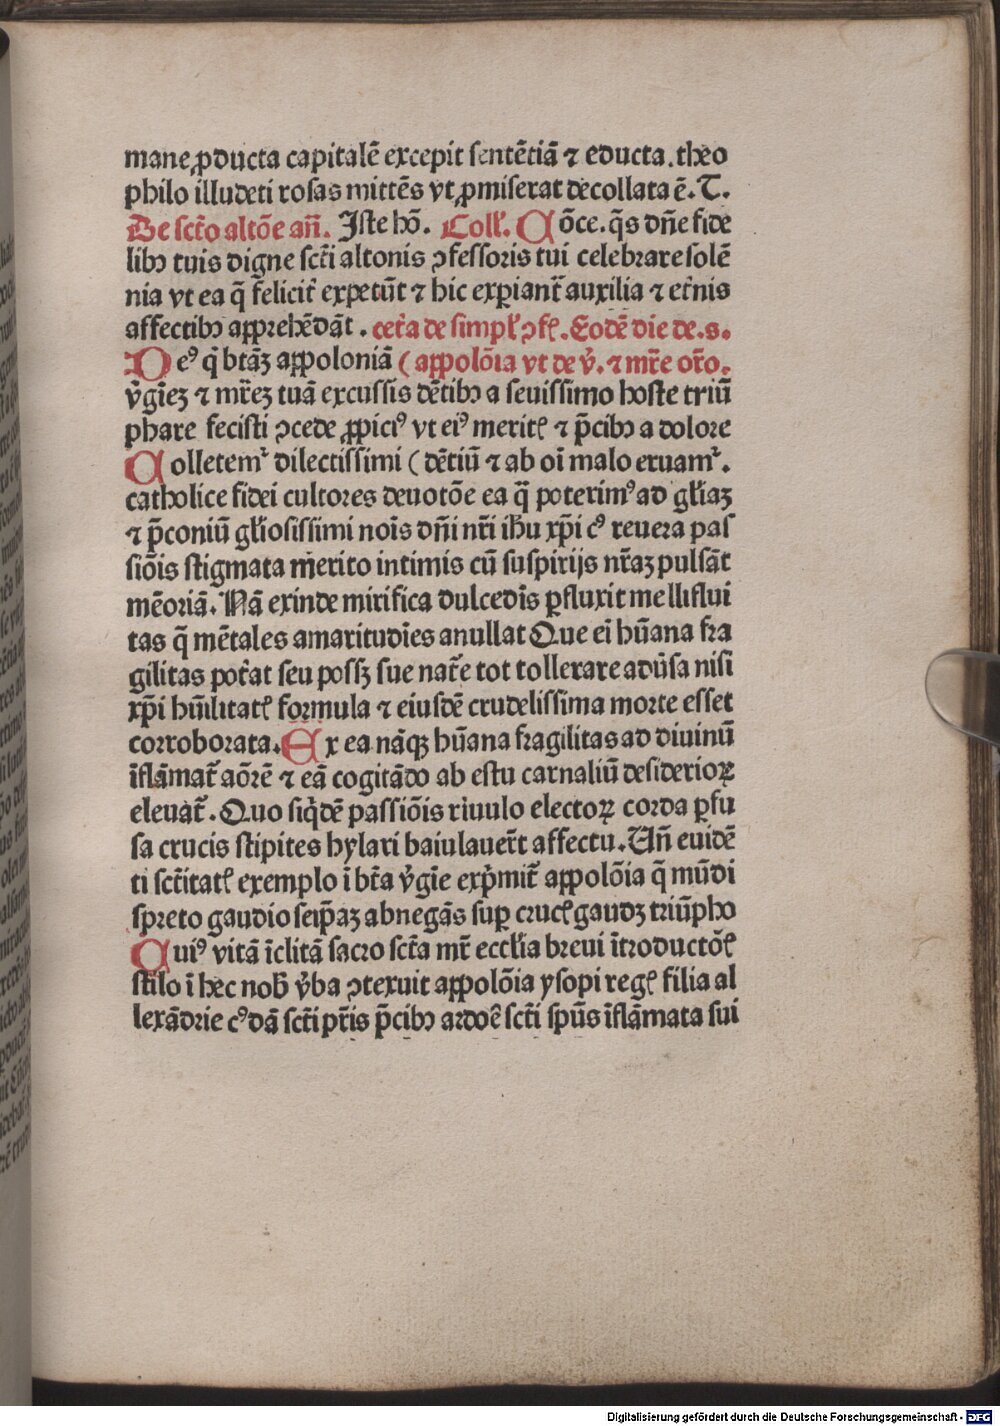 mane ꝓducta capitalē excepit sentētiā ⁊ educta. theo
philo illudēti rosas mittēs vt ꝓmiserat decollata ē. T.
De sct̄o altōe añ. Iste hō. Coll̄. Cōce. q̄s dñe fide
libꝰ tuis digne sct̄i altonis ꝯfessoris tui celebrare solē
nia vt ea q̄ felicit̄ expetūt ⁊ hic expiant̄ auxilia ⁊ et̄nis
affectibꝰ apprehēdāt. cet̄a de simpl̄ ꝯf. Eodē die de. s.
Deꝰ q̄ btāꝫ appoloniā (appolōia vt de v̄. ⁊ mr̄e or̄o.
v̄gīeꝫ ⁊ mr̄eꝫ tuā excussis dētibꝰ a seuissimo hoste triū
phare fecisti ꝯcede ꝓpiciꝰ vt eiꝰ meritꝭ ⁊ p̄cibꝰ a dolore
Colletemᷣ dilectissimi (dētiū ⁊ ab oī malo eruamᷣ.
catholice fidei cultores deuotōe ea q̄ poterimꝰ ad gl̄iaꝫ
⁊ p̄coniū gl̄iosissimi noīs dñi nr̄i ih̄u xp̄i cꝰ reuera pas
siōis stigmata merito intimis cū suspirijs nr̄aꝫ pulsāt
mēoriā. Nā exinde mirifica dulcedīs ꝑfluxit melliflui
tas q̄ mētales amaritudīes anullat Que eī hūana fra
gilitas pot̄at seu possꝫ sue nat̄e tot tollerare adūsa nisi
xp̄i hūilitatꝭ formula ⁊ eiusdē crudelissima morte esset
corroborata. Ex ea nāqꝫ hūana fragilitas ad diuinū
īflāmat̄ aōrē ⁊ eā cogitādo ab estu carnaliū desiderioꝝ
eleuat̄. Quo siq̇dē passiōis riuulo electoꝝ corda ꝑfu
sa crucis stipites hylari baiulauer̄t affectu. Vñ euidē
ti sct̄itatꝭ exemplo ī bt̄a v̄gīe exp̄mit̄ appolōia q̄ mūdi
spreto gaudio seip̄aꝫ abnegās suꝑ crucꝭ gaudꝫ triūpho
Cuiꝰ vitā īclitā sacro sct̄a mr̄ eccl̄ia breui ītroductōꝭ
stilo ī hec nob̄ v̄ba ꝯtexuit appolōia ysopi regꝭ filia al
lexādrie cꝰdā sct̄i pr̄is p̄cibꝰ ardoē sct̄i sp̄ūs īflāmata sui
Digitalisierung gefördert durch die Deutsche Forschungsgemeinschaft - DFG